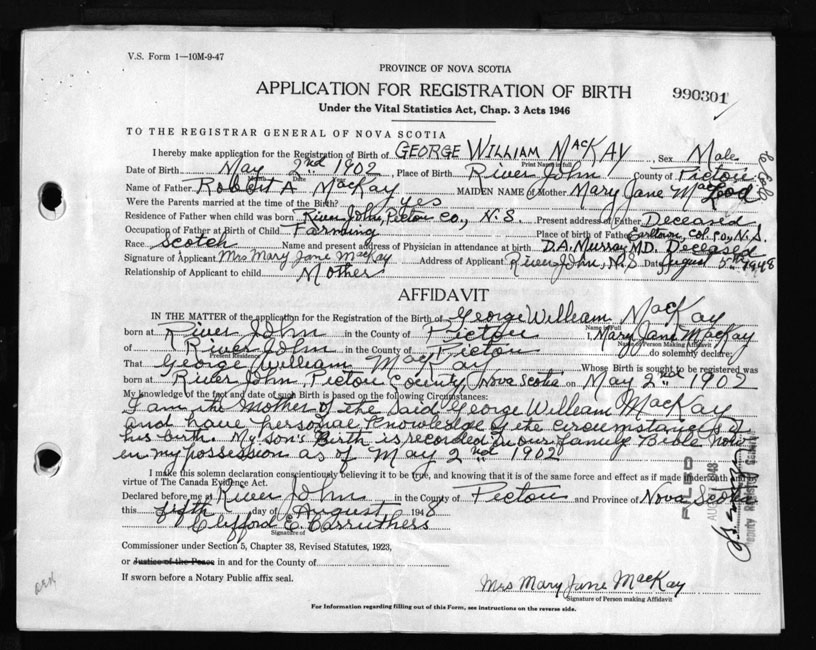 V.S. Form 1—10M-9-47
PROVINCE OF NOVA SCOTIA
APPLICATION FOR REGISTRATION OF BIRTH
990301
Under the Vital Statistics Act, Chap. 3 Acts 1946
TO THE REGISTRAR GENERAL OF NOVA SCOTIA
I hereby make application for the Registration of Birth of GEORGE WILLIAM MACKAY, Sex Male
Print Name in full
Date of Birth May 2nd 1902, Place of Birth River John County of Pictou
Month Date Year
Name of Father Robert A MacKay MAIDEN NAME of Mother Mary Jane MacLeod
Were the Parents married at the time of the Birth? yes
Residence of Father when child was born River John, Pictou Co., N.S. Present address of Father Deceased
Occupation of Father at Birth of Child Farming Place of birth of Father Earltown, Col. Co., N.S.
Race Scotch Name and present address of Physician in attendance at birth D.A. Murray M.D. Deceased
Signature of Applicant Mrs Mary Jane MacKay Address of Applicant River John, N.S Date August 5th 1948
Relationship of Applicant to child Mother
AFFIDAVIT
IN THE MATTER of the application for the Registration of the Birth of George William MacKay
Name in Full
born at River John in the County of Pictou I, Mary Jane MacKay
Name of Person Making Affidavit
of River John in the County of Pictou do solemnly declare:
Present Residence
That George William MacKay Whose Birth is sought to be registered was
born at River John, Pictou County, Nova Scotia on May 2nd 1902
My knowledge of the fact and date of such Birth is based on the following Circumstances:
I am the Mother of the said George William MacKay
and have personal knowledge of the circumstances of
his birth. My son's Birth is recorded in our family Bible now
in my possession as of May 2nd 1902
I make this solemn declaration conscientiously believing it to be true, and knowing that it is of the same force and effect as if made under oath and
virtue of The Canada Evidence Act.
Declared before me at River John in the County of Pictou and Province of Nova Scotia
this fifth day of August 1948
Clifford E. Carruthers
Signature of
Commissioner under Section 5, Chapter 38, Revised Statutes, 1923,
or Justice of the Peace in and for the County of
If sworn before a Notary Public affix seal.
Mrs Mary Jane MacKay
Signature of Person making Affidavit
For Information regarding filling out of this Form, see instructions on the reverse side.
FILED
Deputy Registrar General